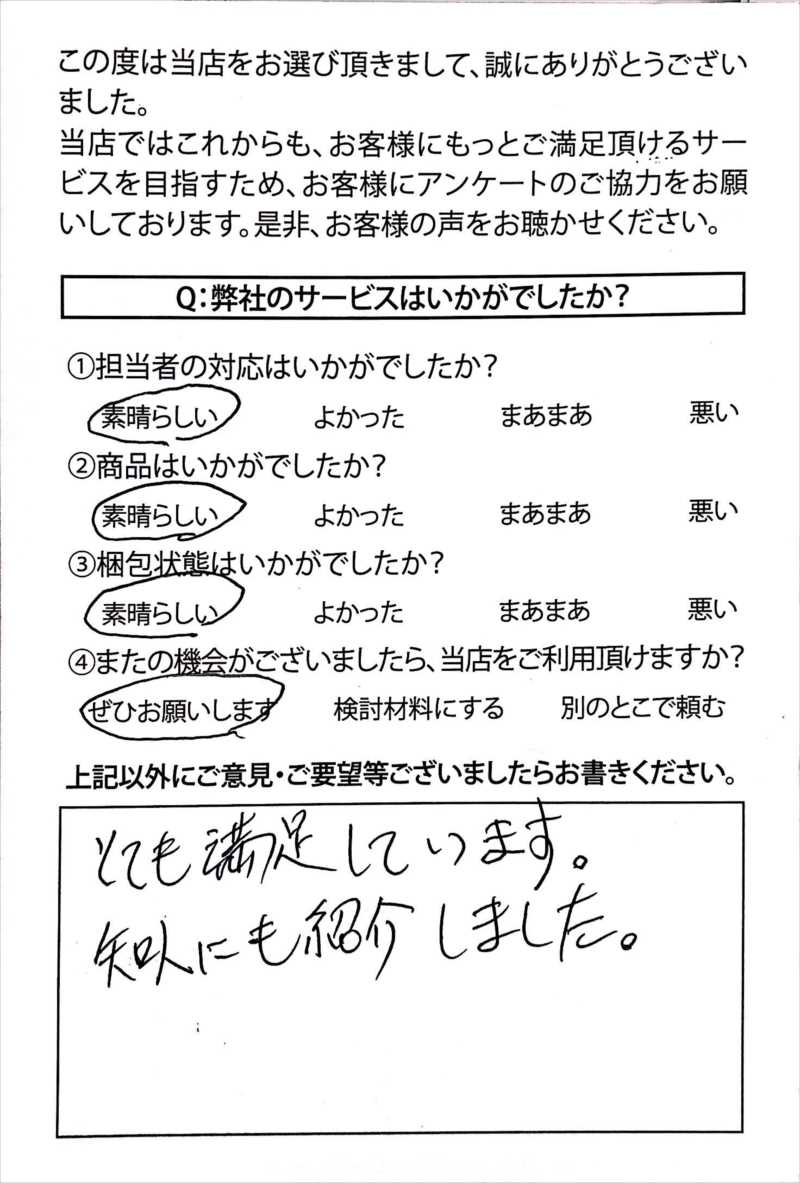 この度は当店をお選び頂きまして、誠にありがとうござい
ました。
当店ではこれからも、お客様にもっとご満足頂けるサー
ビスを目指すため、お客様にアンケートのご協力をお願
いしております。是非、お客様の声をお聴かせください。
Q：弊社のサービスはいかがでしたか？
①担当者の対応はいかがでしたか？
素晴らしい よかった まあまあ 悪い
②商品はいかがでしたか？
素晴らしい よかった まあまあ 悪い
③梱包状態はいかがでしたか？
素晴らしい よかった まあまあ 悪い
④またの機会がございましたら、当店をご利用頂けますか？
ぜひお願いします 検討材料にする 別のとこで頼む
上記以外にご意見・ご要望等ございましたらお書きください。
とても満足しています。
知人にも紹介しました。